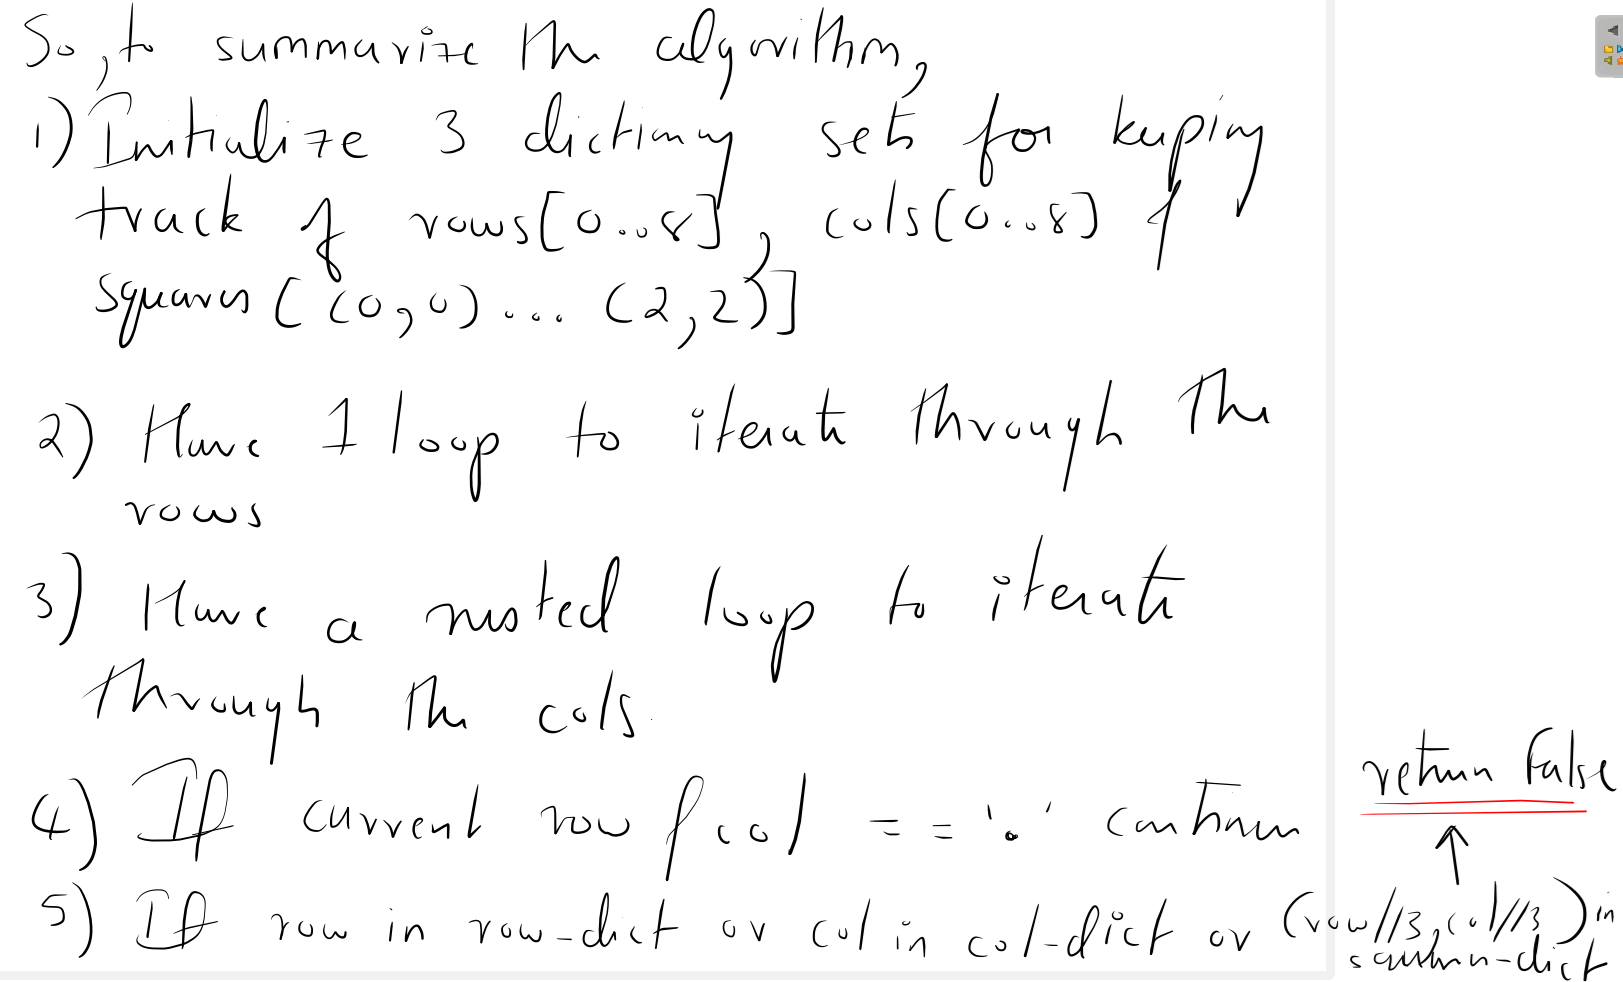 So, to summarize the algorithm,
1) Initialize 3 dictionary sets for keeping
track of rows[0..8], cols[0..8] &
squares[(0,0)...(2,2)]
2) Have 1 loop to iterate through the
rows
3) Have a nested loop to iterate
through the cols.
4) If current row & col == '.' continue
return False
5) If row in row-dict or col in col-dict or (row//3, col//3) in
-dict